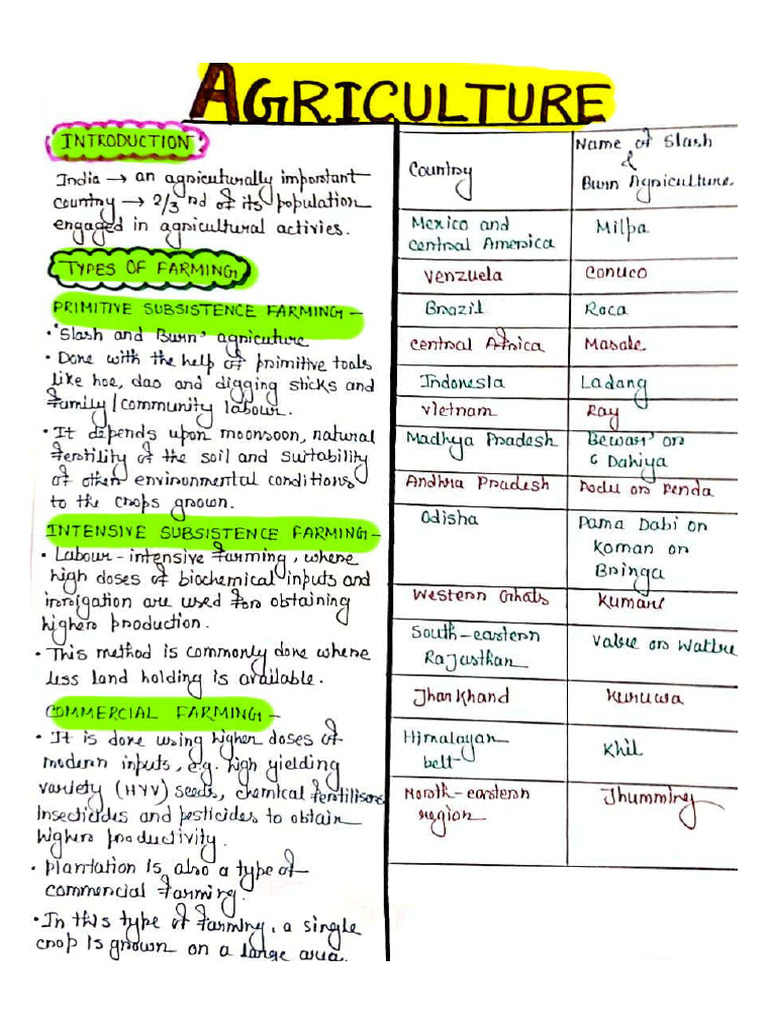 AGRICULTURE
INTRODUCTION
India → an agriculturally important
country → 2/3 nd of its population
engaged in agricultural activies.
TYPES OF FARMING
PRIMITIVE SUBSISTENCE FARMING –
• 'Slash and Burn' agricuture
• Done with the help of primitive tools
like hoe, dao and digging sticks and
family/community labour.
• It depends upon moonsoon, natural
fertility of the soil and suitability
of other environmental conditions
to the crops grown.
INTENSIVE SUBSISTENCE FARMING –
• Labour-intensive farming, where
high doses of biochemical inputs and
irrigation are used for obtaining
higher production.
• This method is commonly done where
less land holding is available.
COMMERCIAL FARMING –
• It is done using higher doses of
modern inputs, e.g. high yielding
variety (HYV) seeds, chemical fertilisers
insecticides and pesticides to obtain
higher productivity.
• Plantation is also a type of
commercial farming.
• In this type of farming, a single
crop is grown on a large area.
Country
Name of Slash
&
Burn Agriculture.
Mexico and
central America
Milpa
Venzuela
Conuco
Brazil
Roca
Central Africa
Masole
Indonesia
Ladang
Vietnam
Ray
Madhya Pradesh
Bewar' or
Dahiya
Andhra Pradesh
Podu or Penda
Odisha
Pama Dabi or
Koman or
Bringa
Western Ghats
Kumari
South-eastern
Rajasthan
Valre or Waltre
Jharkhand
Kuruwa
Himalayan
belt-
Khil
North-eastern
region
Jhumming